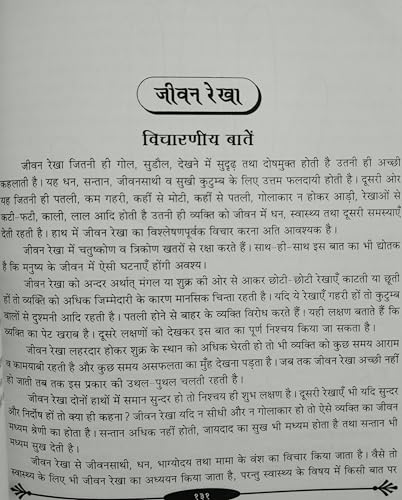 जीवन रेखा
विचारणीय बातें
जीवन रेखा जितनी ही गोल, सुडौल, देखने में सुदृढ़ तथा दोषमुक्त होती है उतनी ही अच्छी
कहलाती है। यह धन, सन्तान, जीवनसाथी व सुखी कुटुम्ब के लिए उत्तम फलदायी होती है। दूसरी ओर
यह जितनी ही पतली, कम गहरी, कहीं से मोटी, कहीं से पतली, गोलाकार न होकर आड़ी, रेखाओं से
कटी-फटी, काली, लाल आदि होती है उतनी ही व्यक्ति को जीवन में धन, स्वास्थ्य तथा दूसरी समस्याएँ
देती रहती है। हाथ में जीवन रेखा का विश्लेषणपूर्वक विचार करना अति आवश्यक है।
जीवन रेखा में चतुष्कोण व त्रिकोण खतरों से रक्षा करते हैं। साथ-ही-साथ इस बात का भी द्योतक
है कि मनुष्य के जीवन में ऐसी घटनाएँ होंगी अवश्य।
जीवन रेखा को अन्दर अर्थात् मंगल या शुक्र की ओर से आकर छोटी-छोटी रेखाएँ काटती या छूती
हों तो व्यक्ति को अधिक जिम्मेदारी के कारण मानसिक चिन्ता रहती है। यदि ये रेखाएँ गहरी हों तो कुटुम्ब
वालों से दुश्मनी आदि रहती है। पतली होने से बाहर के व्यक्ति विरोध करते हैं। यही लक्षण बताते हैं कि
व्यक्ति का पेट खराब है। दूसरे लक्षणों को देखकर इस बात का पूर्ण निश्चय किया जा सकता है।
जीवन रेखा लहरदार होकर शुक्र के स्थान को अधिक घेरती हो तो भी व्यक्ति को कुछ समय आराम
व कामयाबी रहती है और कुछ समय असफलता का मुँह देखना पड़ता है। जब तक जीवन रेखा अच्छी नहीं
हो जाती तब तक इस प्रकार की उथल-पुथल चलती रहती है।
जीवन रेखा दोनों हाथों में समान सुन्दर हो तो निश्चय ही शुभ लक्षण है। दूसरी रेखाएँ भी यदि सुन्दर
और निर्दोष हों तो क्या ही कहना? जीवन रेखा यदि न सीधी और न गोलाकार हो तो ऐसे व्यक्ति का जीवन
मध्यम श्रेणी का होता है। सन्तान अधिक नहीं होती, जायदाद का सुख भी मध्यम होता है तथा सन्तान भी
मध्यम सुख देती है।
जीवन रेखा से जीवनसाथी, धन, भाग्योदय तथा मामा के वंश का विचार किया जाता है। वैसे तो
स्वास्थ्य के लिए भी जीवन रेखा का अध्ययन किया जाता है, परन्तु स्वास्थ्य के विषय में किसी बात पर
१३१